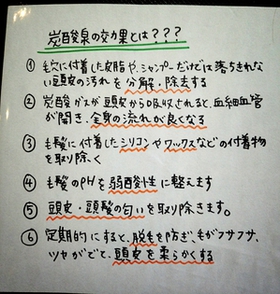 炭酸泉の効果とは???
① 毛穴に付着した皮脂や、シャンプーだけでは落ちきれない頭皮の汚れを分解、除去する
② 炭酸ガスが頭皮から吸収されると、血細血管が開き、全身の流れが良くなる
③ 毛髪に付着したシリコンやワックスなどの付着物を取り除く
④ 毛髪のPHを弱酸性に整えます
⑤ 頭皮・頭髪の匂いを取り除きます。
⑥ 定期的にすると、脱毛を防ぎ、毛がフサフサ、ツヤがでて、頭皮を柔らかくする